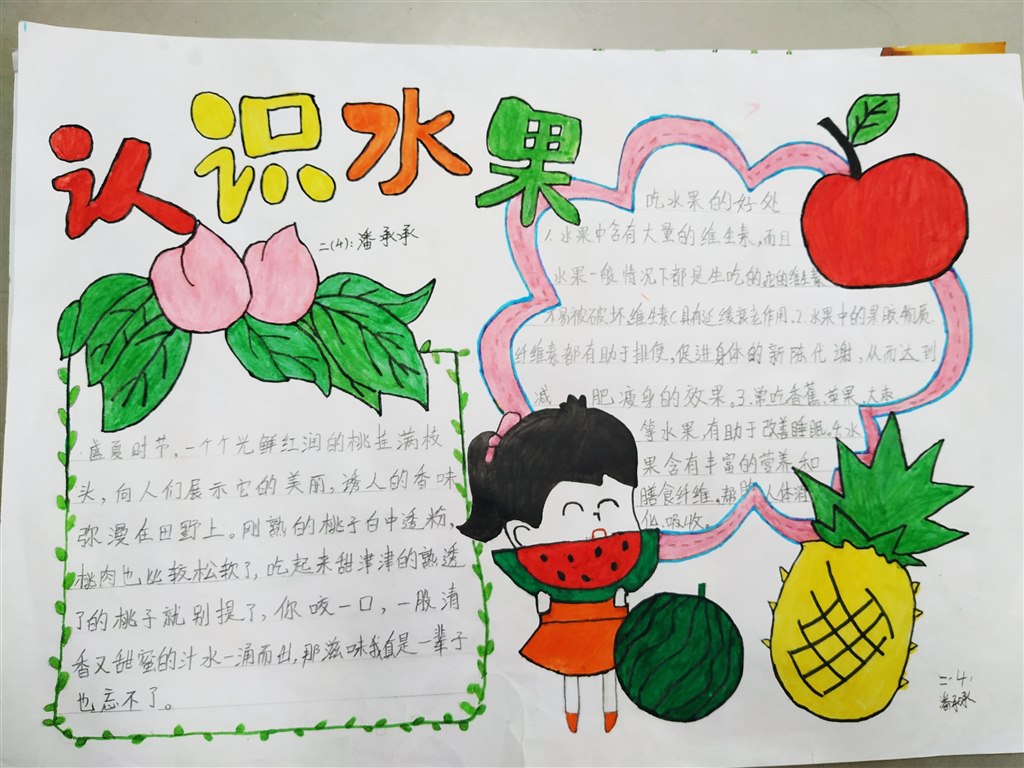 认识水果
二(4):潘承承
盛夏时节,一个个光鲜红润的桃挂满枝
头,向人们展示它的美丽,诱人的香味
弥漫在田野上。刚熟的桃子白中透粉,
桃肉也比较松软了,吃起来甜津津的熟透
了的桃子就别提了,你咬一口,一股清
香又甜蜜的汁水一涌而出,那滋味我真是一辈子
也忘不了。
吃水果的好处
1.水果中含有大量的维生素,而且
水果一般情况下都是生吃的,维生素
不易被破坏,维生素C具有延缓衰老作用.2.水果中的果胶物质
纤维素都有助于排便,促进身体的新陈代谢,从而达到
减肥瘦身的效果。3.常吃香蕉,苹果,大枣
等水果,有助于改善睡眠。水
果含有丰富的营养和
膳食纤维,帮助人体消
化,吸收。
二.4.
潘承承